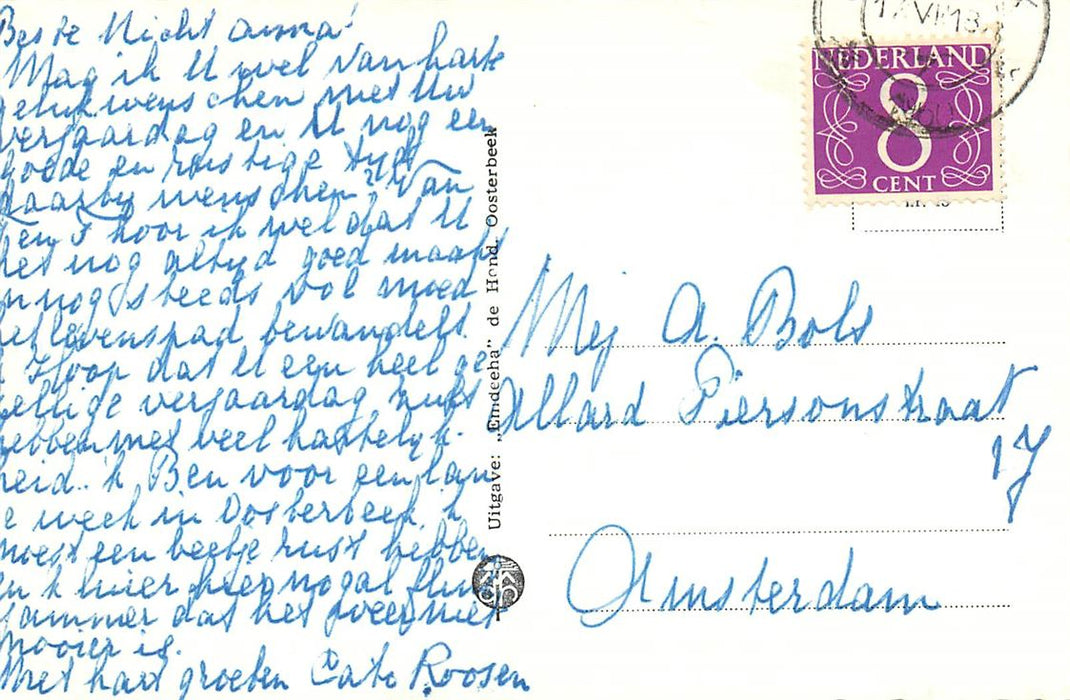 Beste Nicht anna!
Mag ik U wel van harte
gelukwenschen met Uw
vergaardag en U nog een
goede en rustige tyd
daarby wenschen. Van
hoor ik wel dat U
het nog altyd goed maakt
en nog steeds vol moed
het levenspad bewandelt.
Hoop dat U een heel ge
zellige vergaardag zult
hebben met veel hartelyk-
heid. ik Ben voor een lan
ge week in Oosterbeek. ik
moest een beetje rust hebben
en hier nogal
jammer dat het weer niet
mooier is.
Met hart groeten Cato Roosen
Uitgave: „Eindceha” de Hond, Oosterbeek
NEDERLAND
8
CENT
Mej A. Bols
Allard Piersonstraat
17
Amsterdam